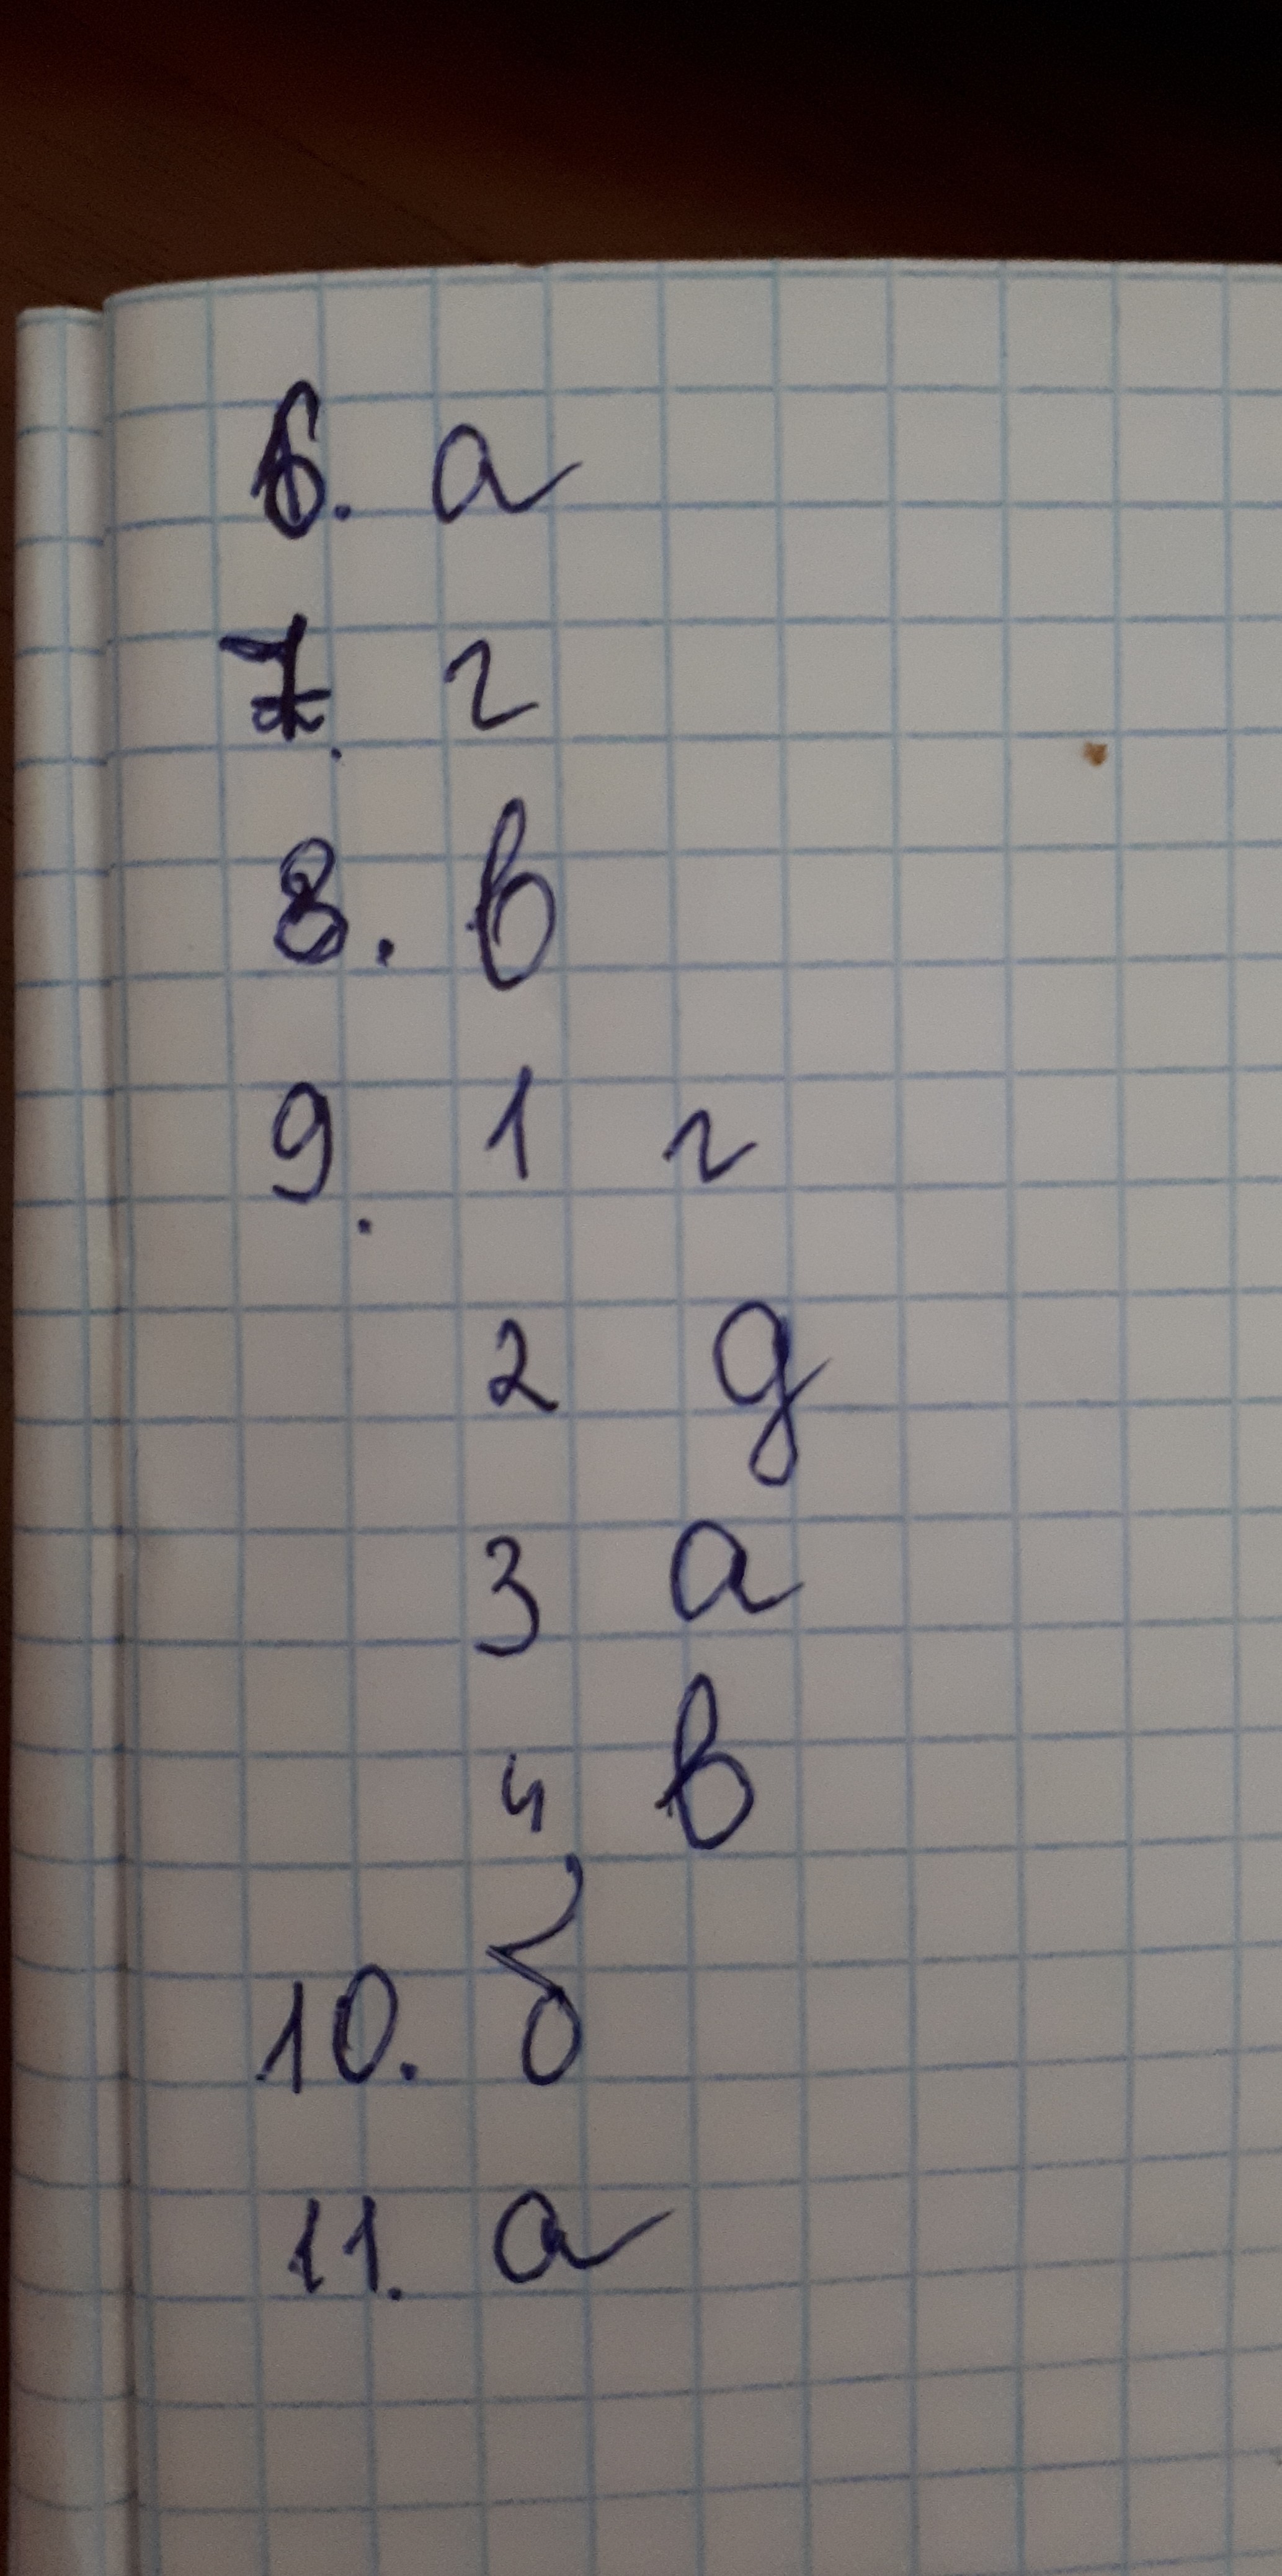 6. а
7. г
8. в
9. 1 г
2 д
3 а
4 в
10. б
11. а